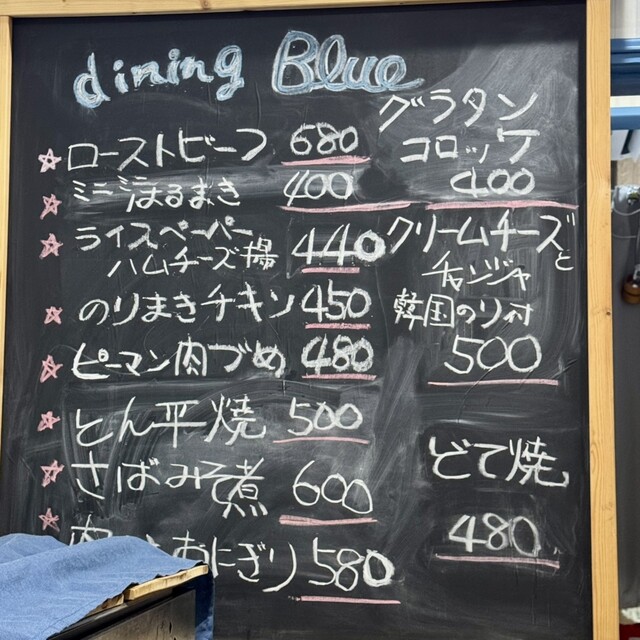 dining Blue
ローストビーフ 680
ミニミニはるまき 400
ライスペーパー
ハムチーズ揚 440
のりまきチキン 450
ピーマン肉づめ 480
とん平焼 500
さばみそ煮 600
おにぎり 580
グラタン
コロッケ
400
クリームチーズと
チャンジャ
韓国のり付
500
どて焼
480